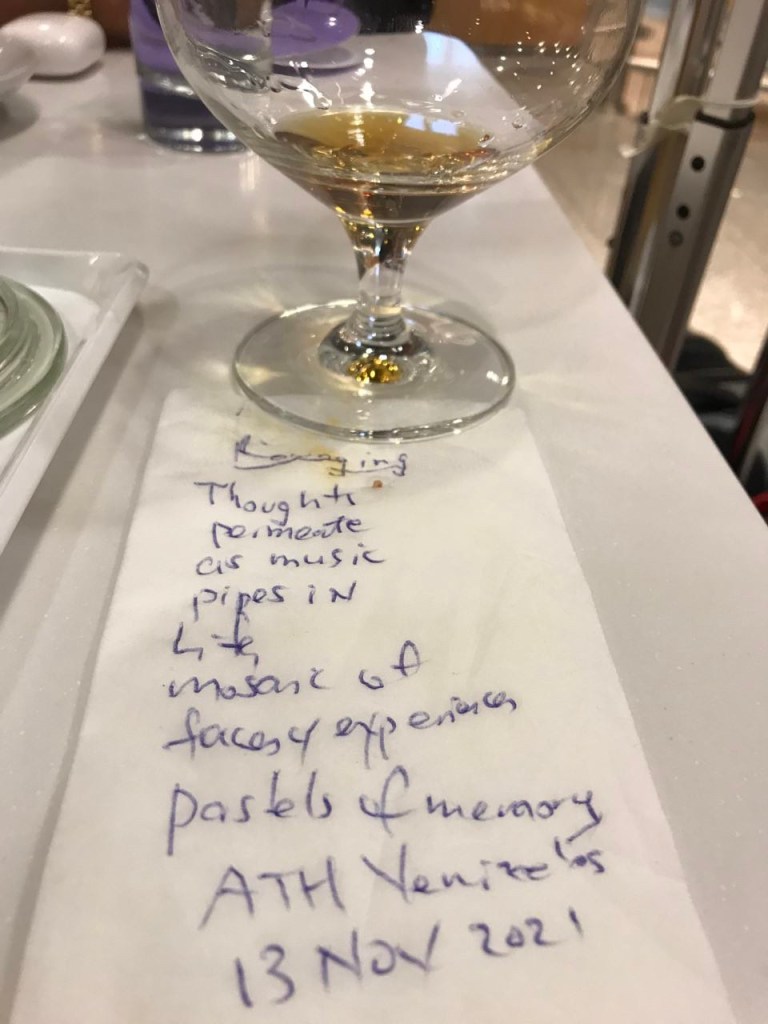 Thoughts
permeate
as music
pipes in
Life
mosaic of
faces & experiences
pastels of memory
ATH Venizelos
13 NOV 2021